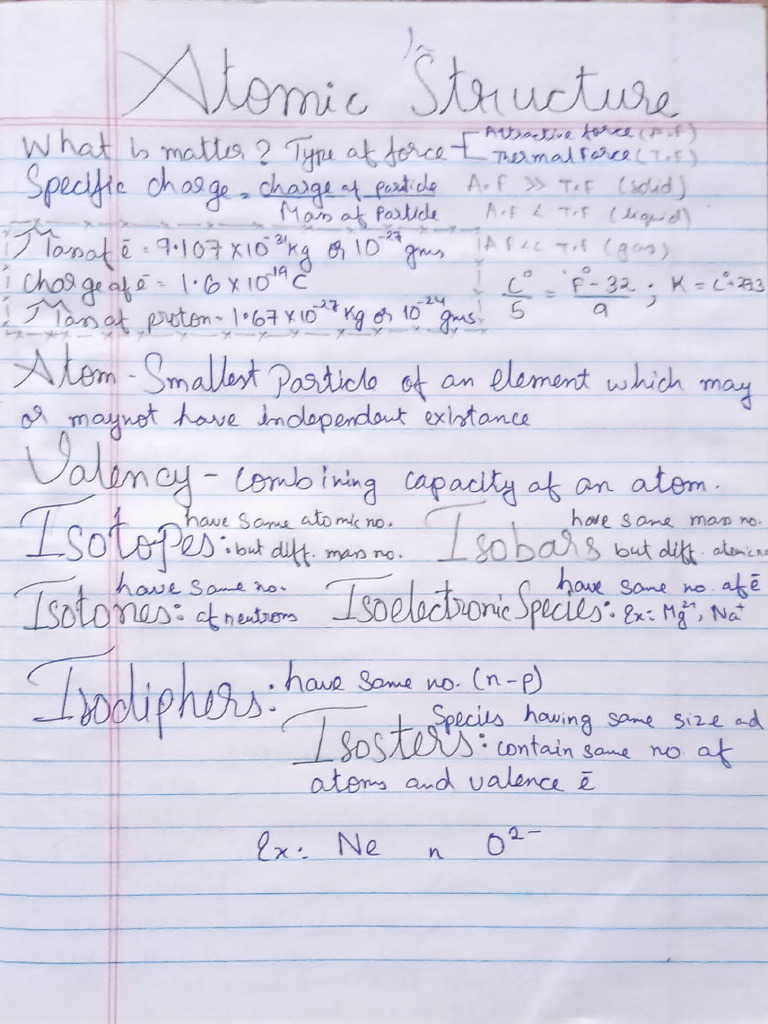 Atomic Structure
What is matter? Type of force - [ Attractive force (A.F)
Thermal Force (T.F)
Specific charge = charge of particle / Mass of Particle
A.F >> T.F (solid)
A.F < T.F (liquid)
Mass of ē = 9.107 x 10⁻³¹ kg or 10⁻²⁷ gms
A F << T.F (gas)
Charge of ē = 1.6 x 10⁻¹⁹ C
C°/5 = F° - 32/9 ; K = C° + 273
Mass of proton = 1.67 x 10⁻²⁷ kg or 10⁻²⁴ gms.
Atom - Smallest Particle of an element which may
or maynot have independent existance
Valency - combining capacity of an atom.
Isotopes: have same atomic no. but diff. mass no.
Isobars have same mass no. but diff. atomic no
Isotones: have same no. of neutrons
Isoelectronic Species: have same no. of ē Ex: Mg²⁺, Na⁺
Isodiphers: have same no. (n-p)
Isosters: Species having same size ad
contain same no. of
atoms and valence ē
Ex: Ne n O²⁻